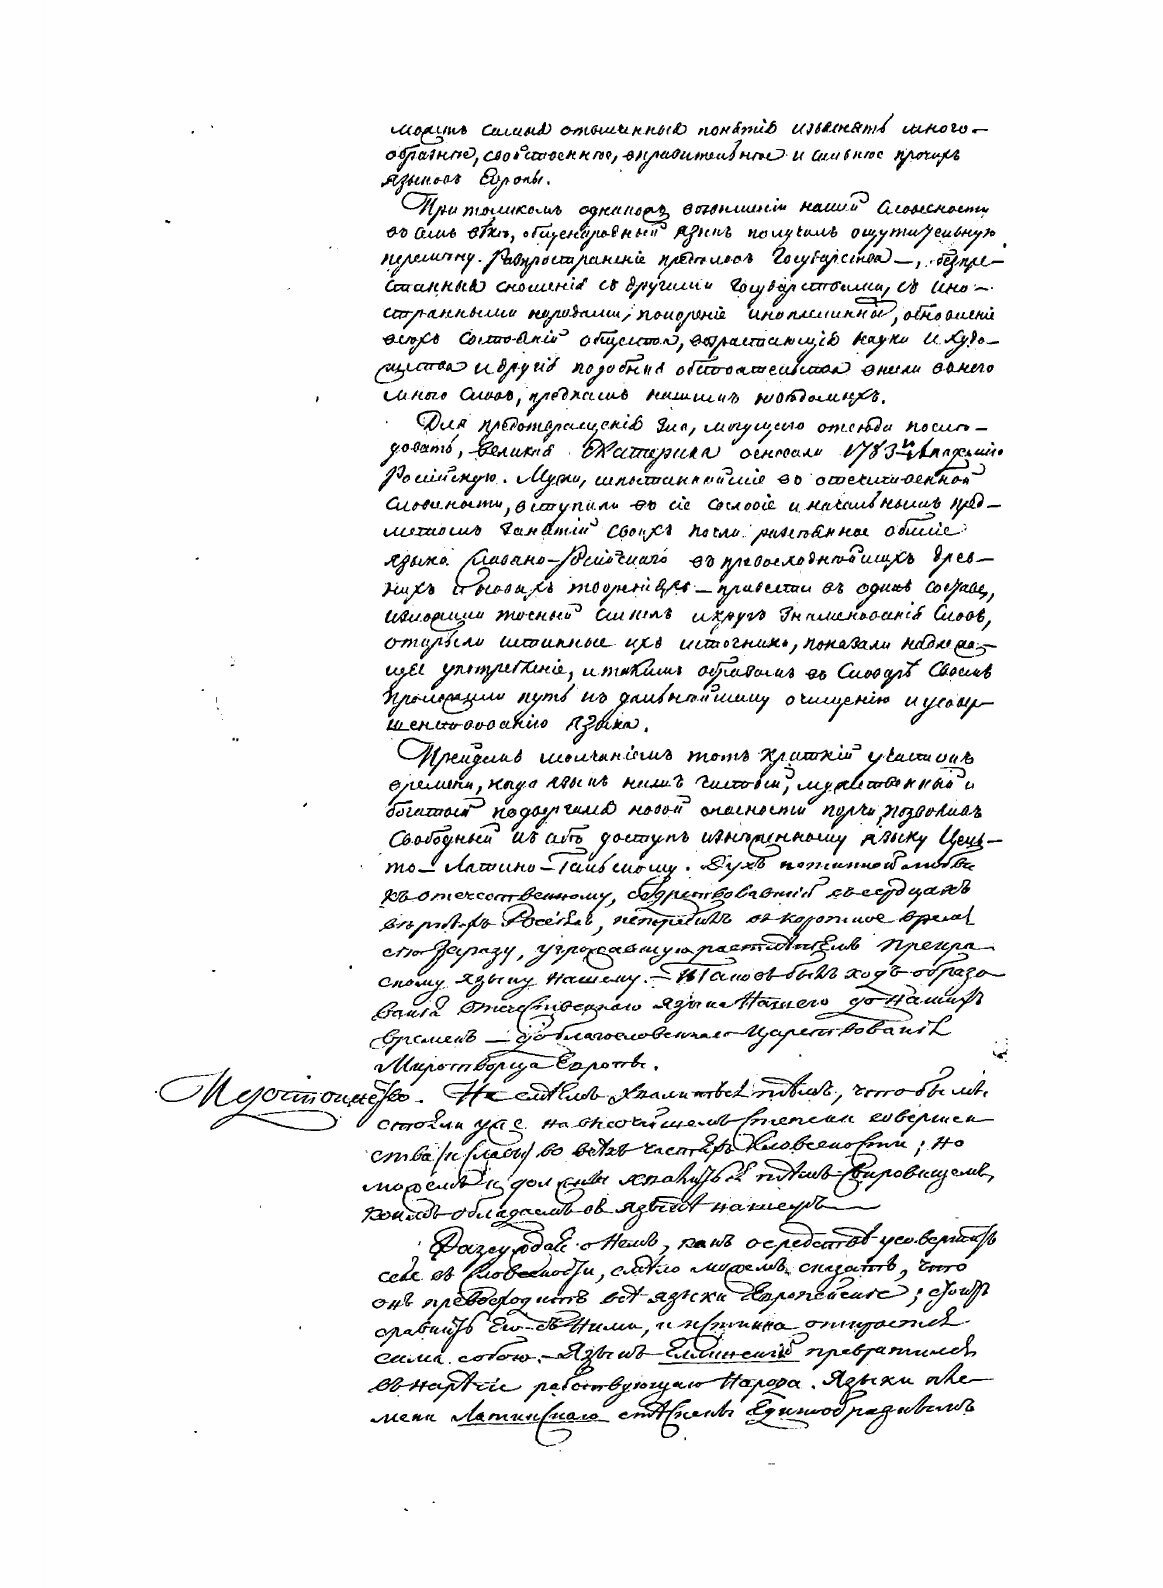 можетъ самыя отвлеченныя понятія изъяснять много-
образнѣе, свойственнѣе, выразительнѣе и сильнѣе прочихъ
языковъ Европы.
При толикомъ однакожъ возвышеніи нашей словесности
въ семъ вѣкѣ, общенародный языкъ получилъ ощутительную
перемѣну. Распространеніе предѣловъ Государства —, безпре-
станныя сношенія съ другими Государствами, съ ино-
странными народами, покореніе иноплеменныхъ, обновленіе
всѣхъ состояній общества, возрастающія науки и худо-
жества и другія подобныя обстоятельства внесли въ него
много словъ, предкамъ нашимъ невѣдомыхъ.
Для предотвращенія зла, могущаго отсюда послѣ-
довать, Великая Екатерина основала 1783 Академію
Россійскую. Мужи, опытнѣйшіе въ отечественной
словесности, вступили въ сіе сословіе и начальнымъ пред-
метомъ занятій своихъ почли разсѣянное обиліе
языка Славяно-Россійскаго въ превосходнѣйшихъ древ-
нихъ и новыхъ твореніяхъ — привести въ одинъ составъ,
изложили точный смыслъ и кругъ знаменованія словъ,
открыли истинные ихъ источники, показали надлежа-
щее употребленіе, и такимъ образомъ въ Словарѣ своемъ
проложили путь къ дальнѣйшему очищенію и усовер-
шенствованію языка.
Прейдемъ молчаніемъ тотъ краткій участокъ
времени, когда языкъ нашъ чистый, мужественный и
богатый подвергался новой опасности порчи, позволивъ
свободный къ себѣ доступъ изнѣженному языку
то-Латино-Галльскому. Духъ истинной любви
къ отечественному, водрствовавшій въ сердцахъ
вѣрныхъ Россіянъ, истребилъ въ короткое время
сію заразу, угрожавшую растлѣніемъ прекра-
сному языку нашему. — Таковъ былъ ходъ образо-
ванія отечественнаго языка нашего до нашихъ
временъ — до благословеннаго Царствованія
Миротворца Европы.
Не смѣемъ хвалиться тѣмъ, чтобы мы
стояли уже на высочайшемъ степени совершен
ства и славы во всѣхъ частяхъ словесности; но
можемъ и должны хвалиться тѣмъ сокровищемъ,
коимъ обладаемъ въ языкѣ нашемъ —
Разсуждая о немъ, какъ о средствѣ усовершить
себя въ словесности, смѣло можемъ сказать, что
онъ превосходитъ всѣ языки Европейскіе; стоитъ
сравнить его съ ними, и истина откроется
сама собою. — Языкъ Еллинскій превратился
въ нарѣчіе рабствующаго народа. Языки пле-
мени Латинскаго стѣснены единообразнымъ